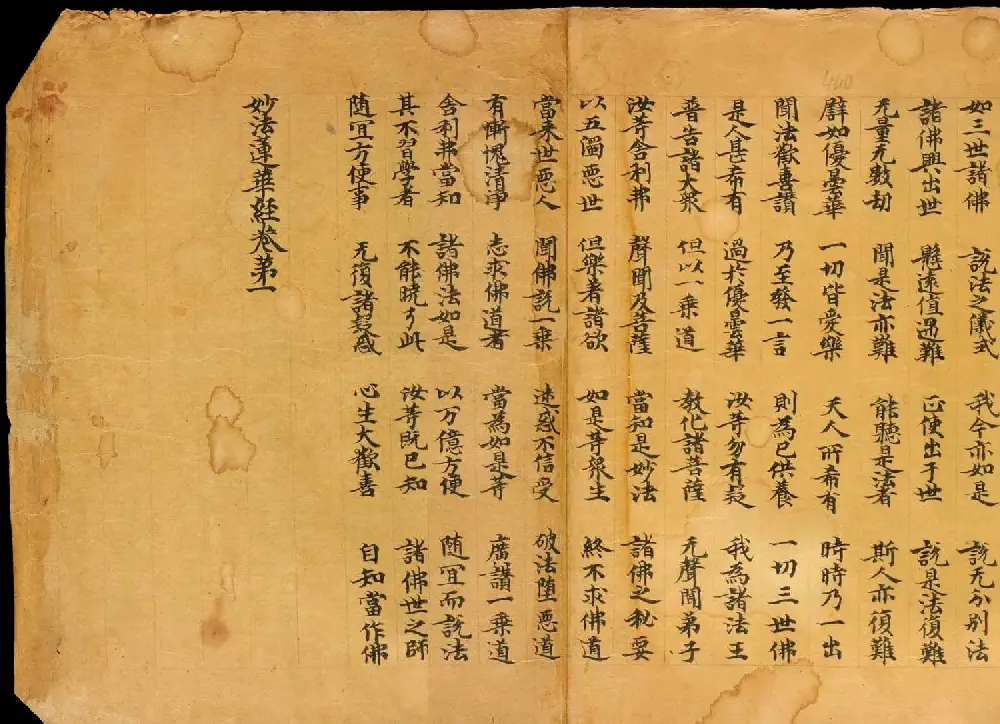 如三世諸佛 説法之儀式 我今亦如是 説无分別法
諸佛興出世 懸遠值遇難 正使出于世 説是法復難
无量无數劫 聞是法亦難 能聽是法者 斯人亦復難
辟如優曇華 一切皆愛樂 天人所希有 時時乃一出
聞法歡喜讚 乃至發一言 則為已供養 一切三世佛
是人甚希有 過於優曇華 汝等勿有疑 我為諸法王
普告諸大衆 但以一乗道 教化諸菩薩 无聲聞弟子
汝等舍利弗 聲聞及菩薩 當知是妙法 諸佛之秘要
以五濁悪世 但樂著諸欲 如是等衆生 終不求佛道
當来世悪人 聞佛説一乗 迷惑不信受 破法堕悪道
有慚愧清淨 志求佛道者 當為如是等 廣讚一乗道
舍利弗當知 諸佛法如是 以万億方便 随冝而説法
其不習學者 不能暁了此 汝等既已知 諸佛世之師
随冝方便事 无復諸疑惑 心生大歡喜 自知當作佛
妙法蓮華經卷第一
460